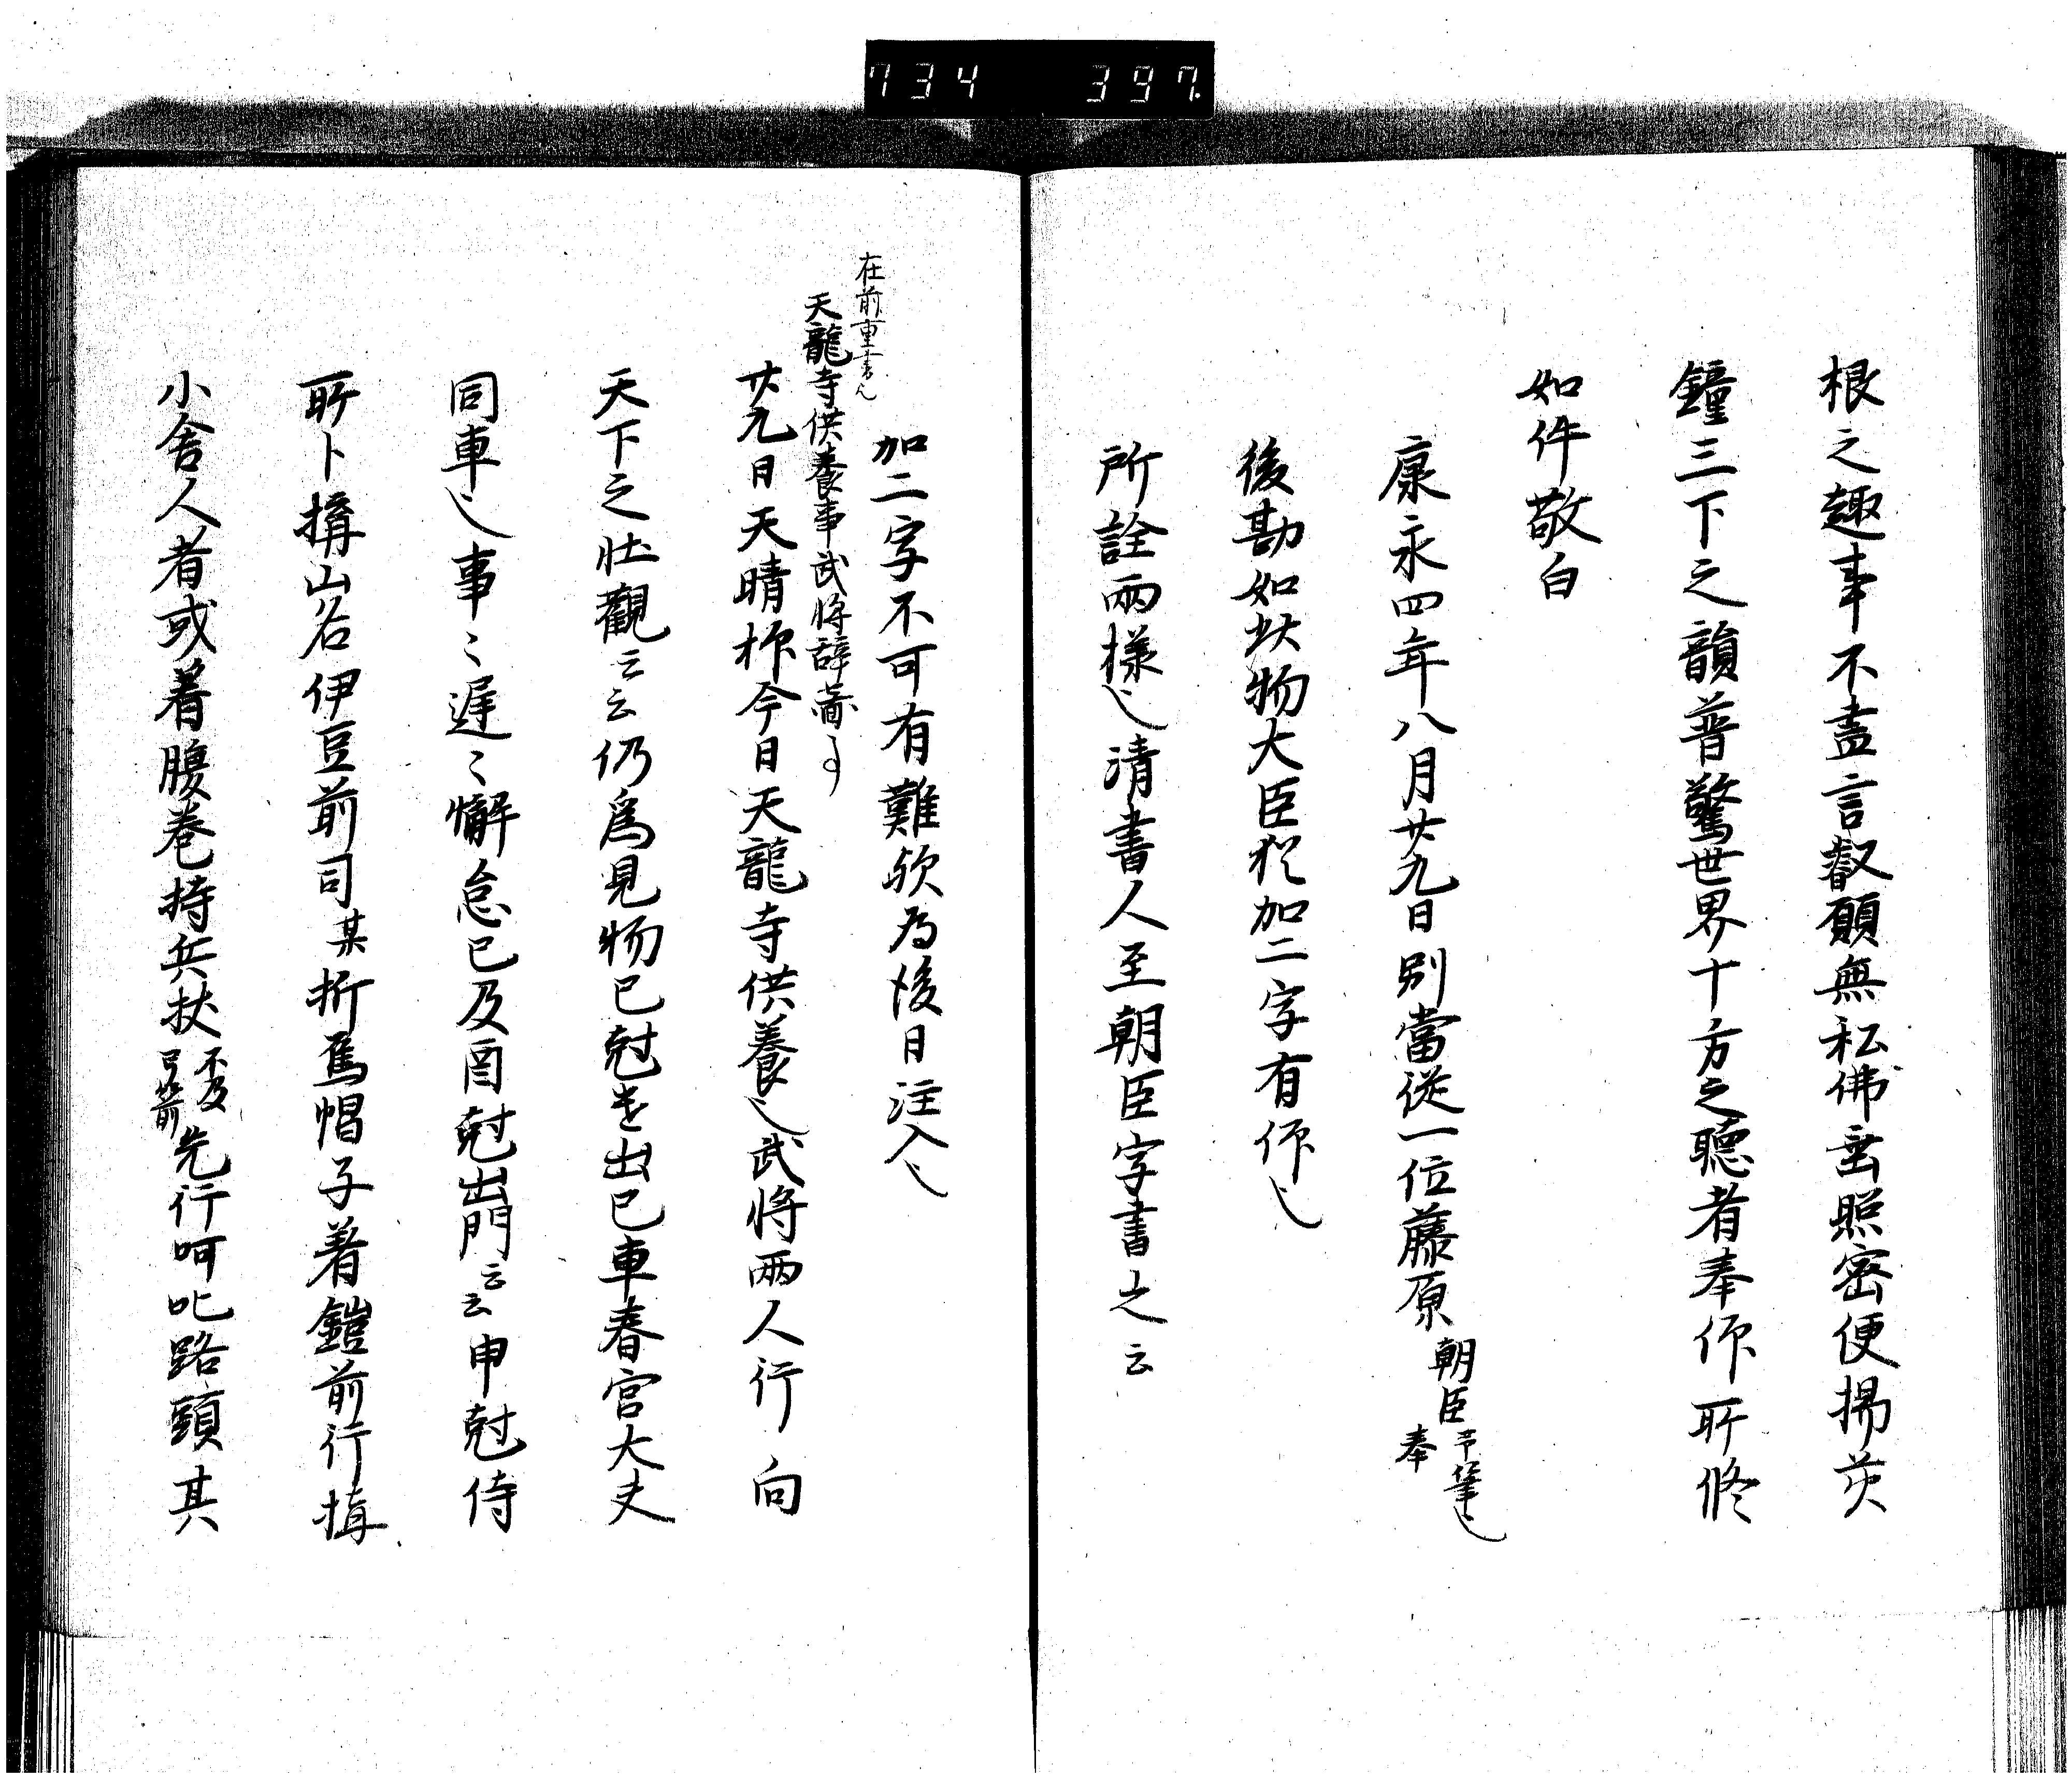 734 397
根之趣事不盡言叡願無私佛垂照密便揚茨
鐘三下之韻普驚世界十方之聴者奉仰所修
如件敬白
康永四年八月廿九日別當従一位藤原朝臣予筆也
奉
後勘如状物大臣猶加二字有仰也
所詮兩様也清書人至朝臣字書之云
加二字不可有難歟為後日注入也
在前重書之
天龍寺供養事武将辞
廿九日天晴抑今日天龍寺供養也武将兩人行向
天下之壮觀云云仍爲見物已尅出已車春宮大夫
同車也事〻遅〻懈怠已及酉尅出門云云申尅侍
所卜搆山名伊豆前司某折烏帽子着鎧前行搆
小舎人者或着腹巻持兵杖不及弓箭先行呵叱路頭其